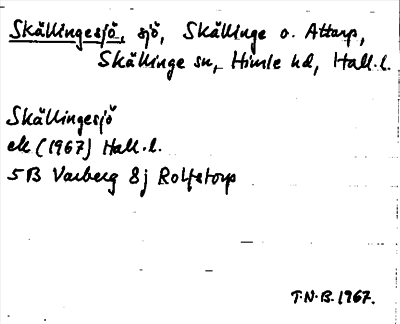 Skällingesjö, sjö, Skällinge o. Attarp,
Skällinge sn, Himle hd, Hall.l.
Skällingesjö
ek (1967) Hall.l.
5B Varberg 8j Rolfstorp
T.N.B. 1967.